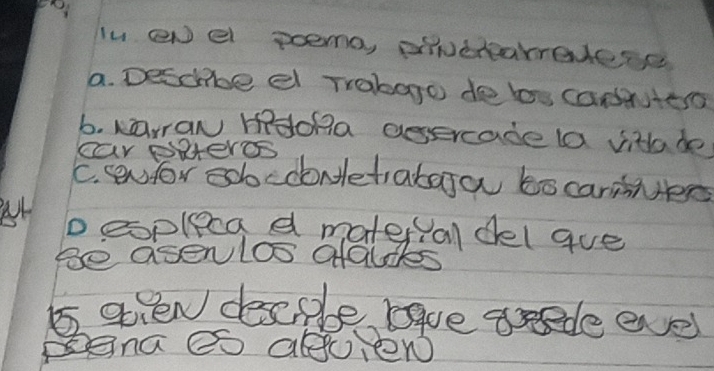 14 en el poema,
a. Describe el Trabago de los carpintero
b. narran historia asercade la vida de
carpinteros
C. donde trabaja los carpinteros
D esplica el materyal del que
se asen los ataudes
15 quien describe lo que susede en el
poema es alguien